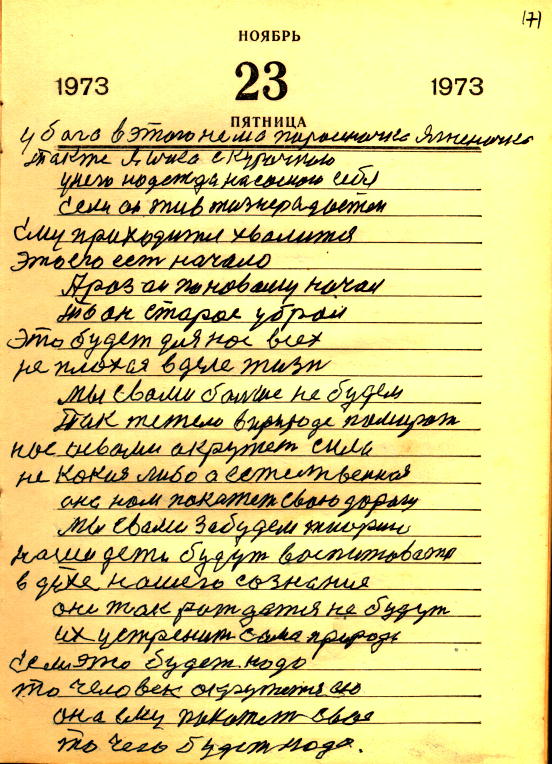 171
НОЯБРЬ
1973 23 1973
ПЯТНИЦА
у бога в этого нема паросиночка ягненочка
также яичка с курочкою
унего надежда насамою себя
Если он жив тизнерадостен
Ему приходится хвалится
Это его ест начало
А раз он поновому начал
то он старое убрал
Это будет для нас всех
не плохая в деле жизн
Мы свами больше не будем
так тежело в природе помират
нас свами окружет сила
не какая либо а естественная
она нам покажет свою дорогу
Мы свами забудем
наши дети будут воспитоватся
в духе нашего сознание
они так рождатся не будут
их устренит сама природа
Если это будет надо
то человек окружется ею
она ему покажет свое
то чего будет надо.